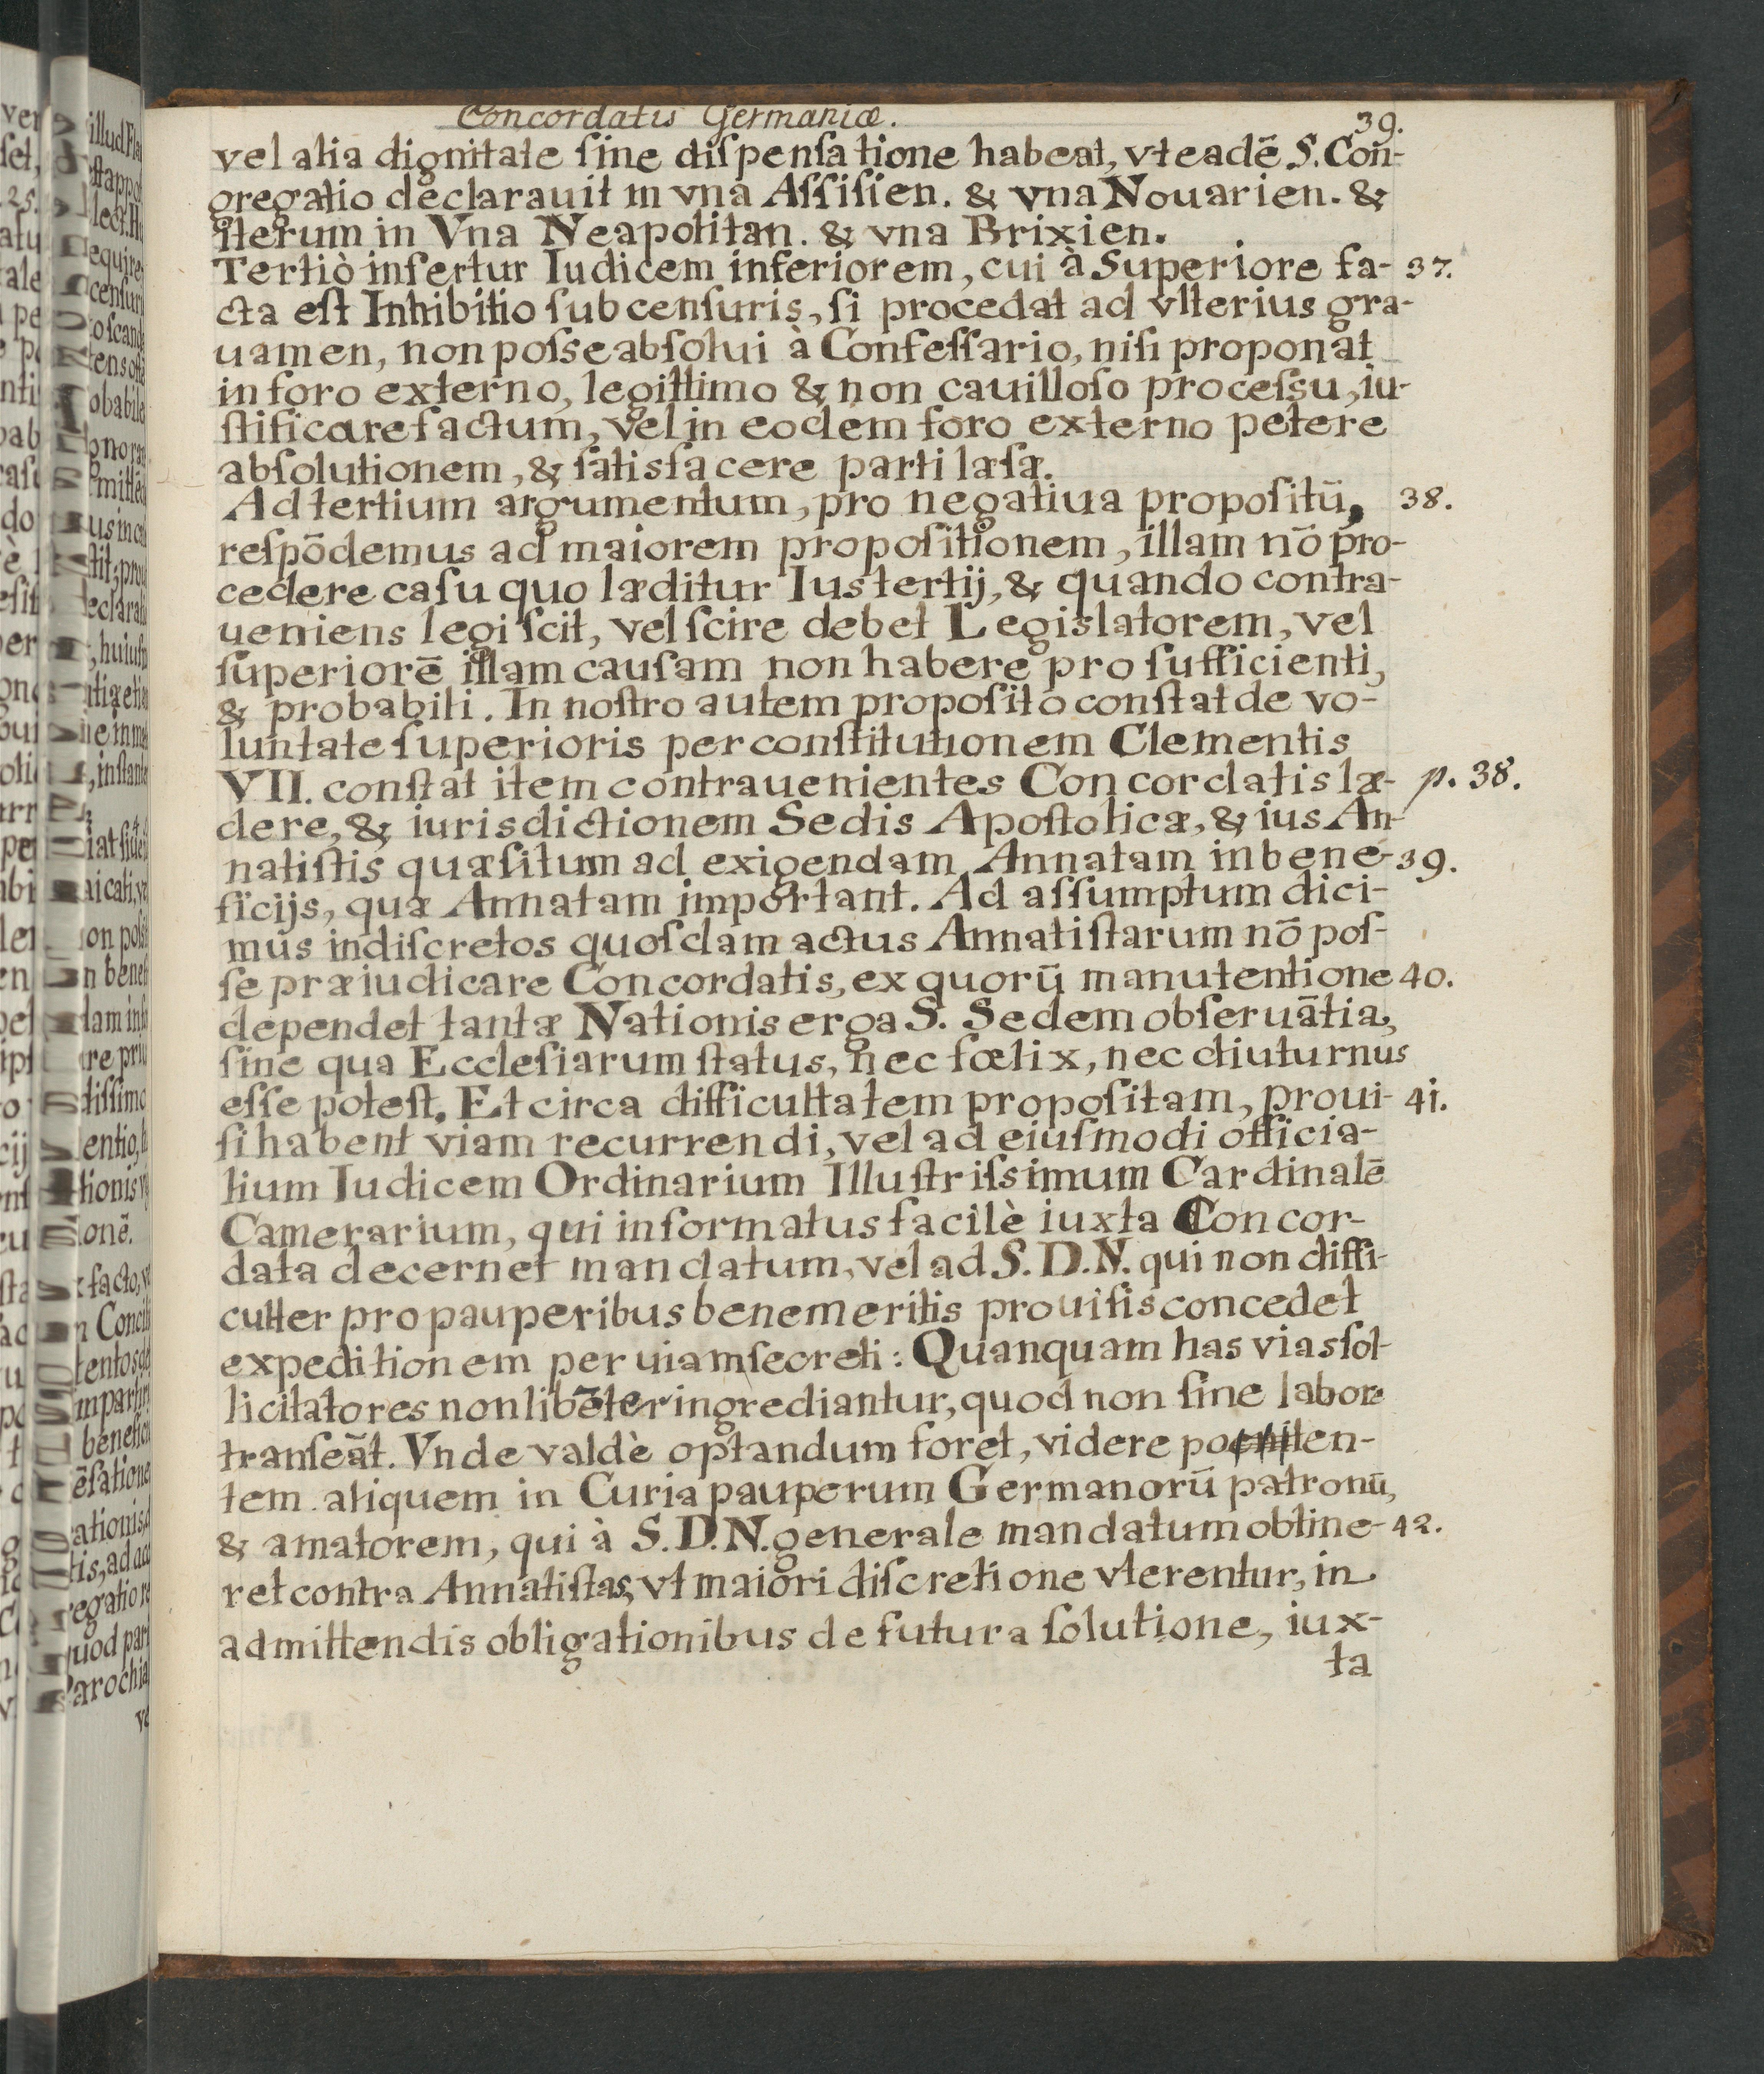 Concordatis Germaniæ.
39.
vel alia dignitate ſine diſpenſatione habeat, vt eadē S. Con-
gregatio declarauit in vna Aſſiſien. & vna Nouarien. &
iterum in Vna Neapolitan. & vna Brixien.
Tertiò infertur Iudicem inferiorem, cui à Superiore fa- 37.
cta eſt Inhibitio ſub cenſuris, ſi procedat ad vlterius gra-
uamen, non poſse abſolui à Confeſſario, niſi proponat
in foro externo, legittimo & non cauilloſo proceſsu, iu-
ſtificare factum, vel in eodem foro externo petere
abſolutionem, & ſatisfacere parti læſæ.
Ad tertium argumentum, pro negatiua propoſitū, 38.
reſpōdemus ad maiorem propoſitionem, illam nō pro-
cedere caſu quo læditur Ius tertij, & quando contra-
ueniens legi ſcit, vel ſcire debet Legislatorem, vel
ſuperiorē illam cauſam non habere pro ſufficienti,
& probabili. In noſtro autem propoſito conſtat de vo-
luntate ſuperioris per conſtitutionem Clementis
VII. conſtat item contrauenientes Concordatis læ- p. 38.
dere, & iurisdictionem Sedis Apoſtolicæ, & ius An-
natiſtis quæſitum ad exigendam Annatam in bene- 39.
ficijs, quæ Annatam important. Ad aſſumptum dici-
mus indiſcretos quoſdam actus Annatiſtarum nō poſ-
ſe præiudicare Concordatis, ex quorū manutentione 40.
dependet tantæ Nationis erga S. Sedem obſeruātia,
ſine qua Eccleſiarum ſtatus, nec fœlix, nec diuturnus
eſſe poteſt. Et circa difficultatem propoſitam, proui- 41.
ſi habent viam recurrendi, vel ad eiuſmodi officia-
lium Iudicem Ordinarium Illuſtriſsimum Cardinalē
Camerarium, qui informatus facilè iuxta Concor-
data decernet mandatum, vel ad S. D. N. qui non diffi-
culter pro pauperibus benemeritis prouiſis concedet
expeditionem per uiam ſecreti: Quanquam has vias ſol-
licitatores non libēter ingrediantur, quod non ſine labore
tranſeāt. Vnde valdè optandum foret, videre poten-
tem aliquem in Curia pauperum Germanorū patronū,
& amatorem, qui à S. D. N. generale mandatum obtine- 42.
ret contra Annatiſtas, vt maiori diſcretione vterentur, in
admittendis obligationibus de futura ſolutione, iux-
ta